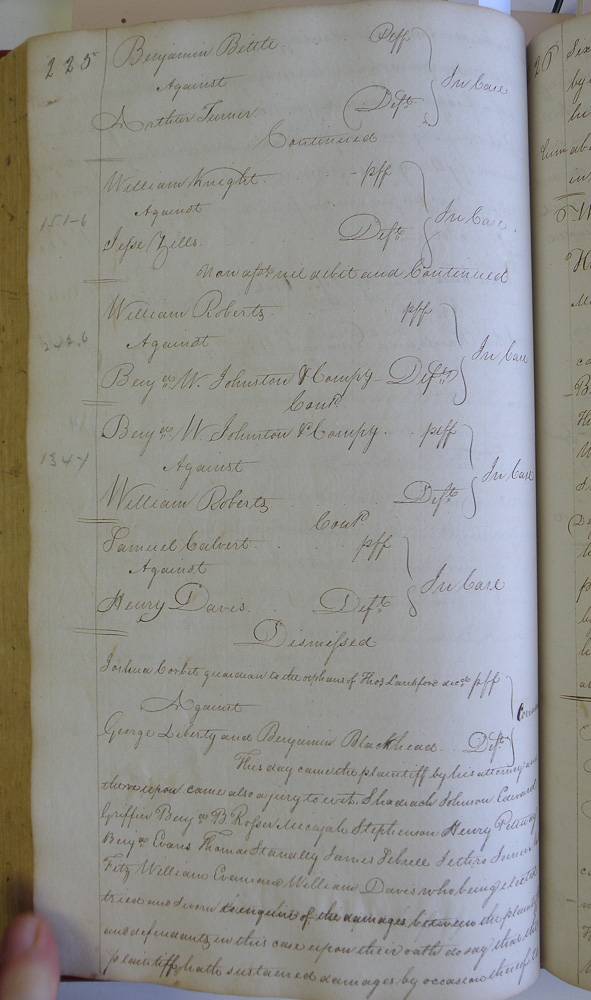 225
Benjamin Bittle Pff
Against In Case
Arthur Turner Deft
Continued
William Knight - pff
151-6 Against In Case
Jesse Deft
Non asst nil debit and Continued
William Roberts pff
Against In Case
Benja W. Johnston & Compy - Defts
Cont
Benja W. Johnston & Compy pff
134-1 Against In Case
William Roberts Deft
Cont
Samuel Calvert pff
Against In Case
Henry Davis Deft
Dismissed
Joshua Corbit guardian to the orphans of Thos Lankford decd pff
Against
George Liberty and Benjamin Blackhead Defts
This day came the plaintiff by his attorney and
thereupon came also a jury to wit Shadrach Johnson Edward
Griffin Benja B Rosser Micajah Stephenson Henry
Benja Evans Thomas James Jethro
Fitz William Evans and William Davis who being elected
tried and sworn to enquire of the damages between the
and defendants in this case upon their oath do say that the
plaintiff hath sustained damages by occasion thereof